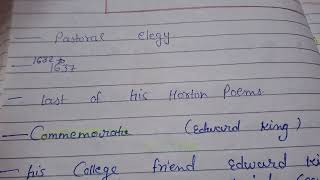 — Pastoral elegy
— 1632 to 1637
— last of his Horton Poems
— Commemorate (Edward King)
— his College friend Edward